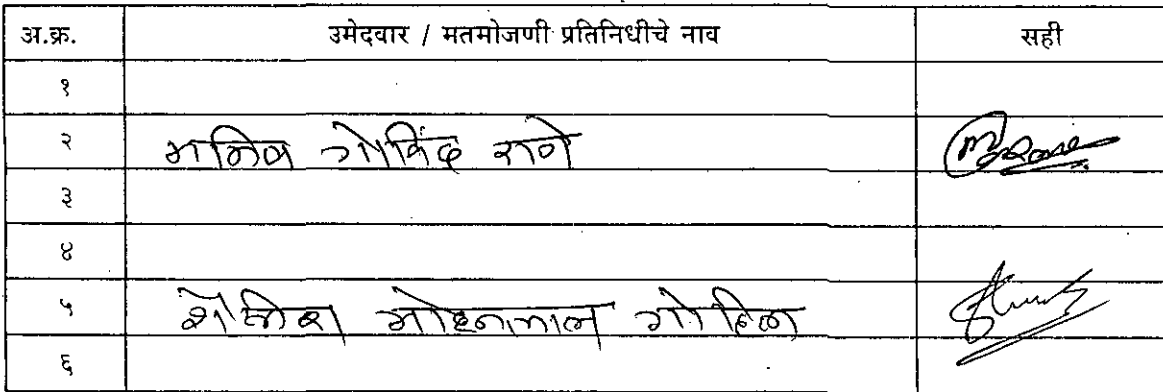 अ.क्र. उमेदवार / मतमोजणी प्रतिनिधीचे नाव सही
१
२ गोविंद राणे
३
४
५ शैलेश मोहनलाल गोहिल
६